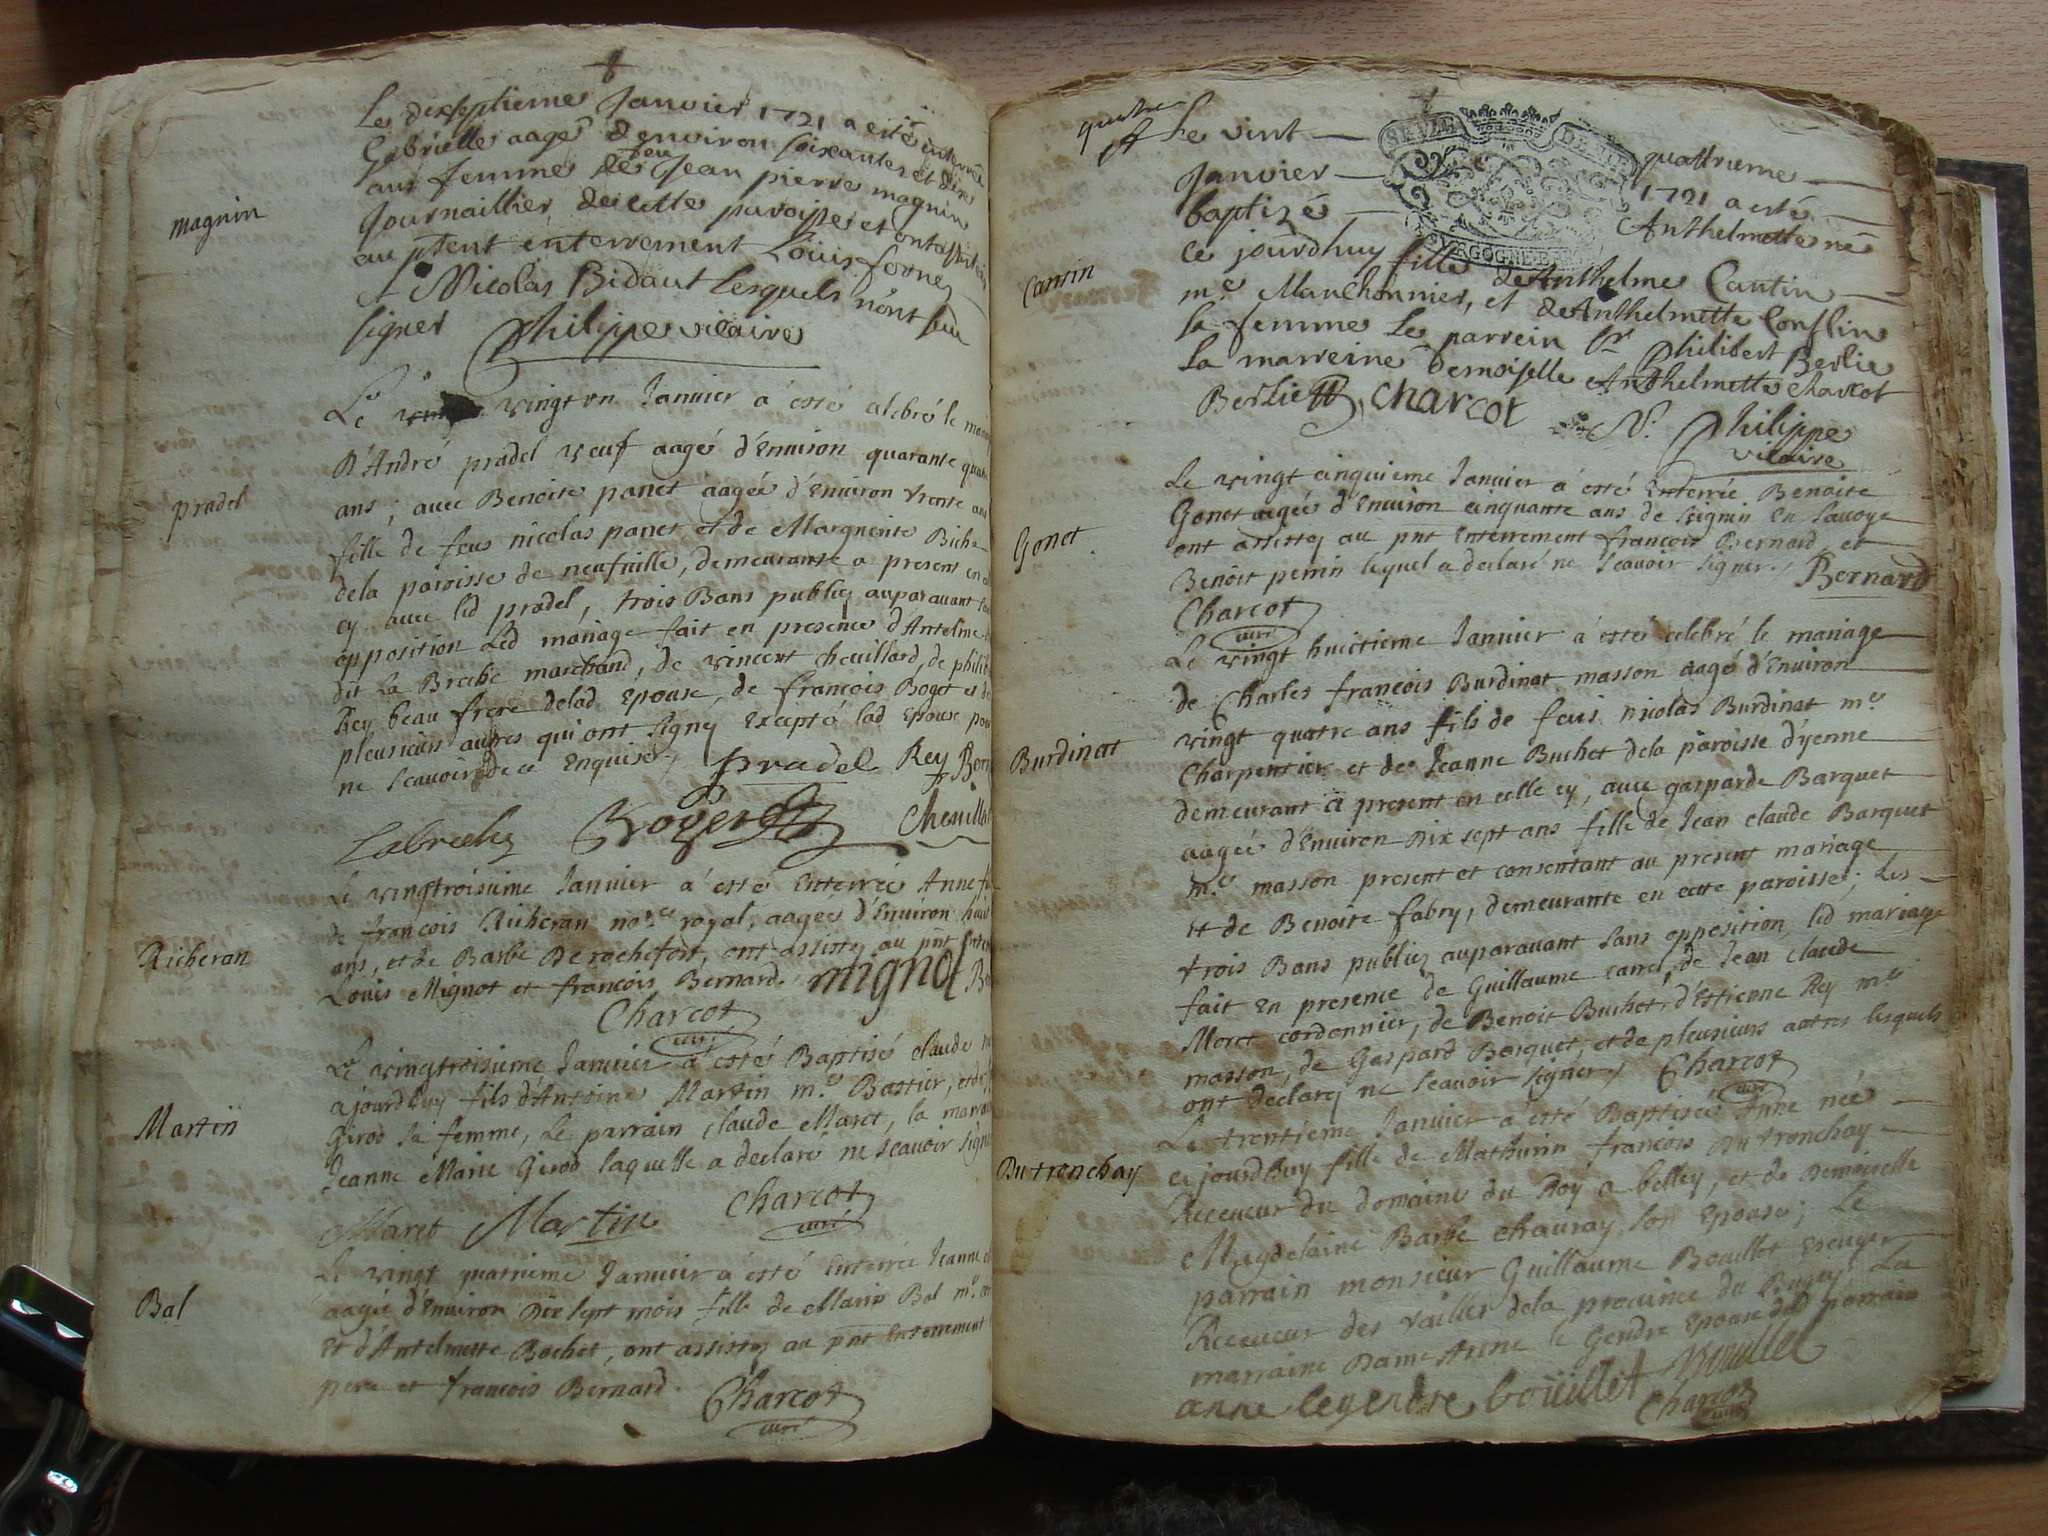 Le dixseptieme Janvier 1721 a esté enterrée
Gabrielle aagé denviron soixante et dix
ans femme de feu Jean pierre magnin
magnin
Journaillier de cette paroisse et ont assisté
au pñt enterrement Louis forne
et Nicolas Bidaut lesquels n'ont sçu
signer Philippe vicaire
Le vingt un Janvier a esté celebré le
D'André pradel veuf aagé d'Environ quarante
pradel
ans, avec Benoite panet aagée d'Environ trente ans
fille de feus nicolas panet et de Marguerite Biche
dela paroisse de neufville, demeurante a present en
cy avec led pradel, trois Bans publiez auparavant
opposition Led mariage fait en presence d'Antelme
dit La Breche marchand, de vincent chevillard, de
Rey beau frere delad Epouse, de françois Boget et
plusieurs autres qui ont signé Excepté lad Epouse pour
ne scavoir de ce Enquise, pradel Rey
Labreche Boget
Le vingtroisieme Janvier a esté Enterrée Anne
de françois Richeran no.re royal, aagée d'Environ
Richeran
ans, et de Barbe De rochefort, ont assistez au pñt
Louis Mignot et françois Bernard. mignot
Charcot
curé
Le vingtroisieme Janvier a esté Baptisé claude
ajourdhuy fils d'Antoine Martin m.e Bastier, et
Martin
Girod sa femme, Le parrain claude Maret, la
Jeanne Marie Girod laquelle a declaré ne scavoir
Maret Martin Charcot
curé
Le vingt quatrieme Janvier a esté Enterrée Jeanne
Bal
aagée d'Environ Dix sept mois fille de Bal m.e
Et d'Antelmette Bochet, ont assistez au pñt Enterrement
pere et françois Bernard.
Charcot
curé
quatre
4
Le vint quattrieme
Janvier 1721 a esté
baptizé Anthelmette né
ce jourdhuy fille de Anthelme Cantin
Cantin
m.e et de Anthelmette Conflin
sa femme Le parrein Sr Philibert Berlie
la marreine demoiselle Anthelmette Charcot
Berlie Charcot N. Philippe
vicaire
Le vingt cinquieme Janvier a esté Enterrée Benoite
Gonet
Gonet aagée d'Environ cinquante ans de en Savoye
ont assistez au pnt Enterrement françois Bernard et
Benoit perrin lequel a declaré ne scavoir signer. Bernard
Charcot
curé
Le vingt huictieme Janvier a esté celebré le mariage
de Charles françois Burdinat masson aagé d'Environ
vingt quatre ans fils de feus nicolas Burdinat m.e
Burdinat
Charpentier et de Jeanne Buchet dela paroisse d'yenne
demeurant a present en celle cy, avec gasparde Barquet
aagée d'Environ Dix sept ans fille de Jean claude Barquet
m.e masson present et consentant au present mariage
et de Benoite fabry, demeurante en cette paroisse; Les
trois Bans publiez auparavant sans opposition led mariage
fait en presence de Guillaume de Jean claude
Moret cordonnier, de Benoit Buchet, d'Estienne Rey m.e
masson, de Gaspard Barquet, et de plusieurs autres lesquels
ont declarez ne scavoir signer, Charcot
curé
Le trentieme Janvier a esté Baptisée Anne née
Dutronchay
ce jourdhuy fille de Mathurin françois Dutronchay
Receveur du domaine du Roy a belley, et de Demoiselle
Magdelaine Barbe chauray son Epouse; Le
parrain monsieur Guillaume Bouillet Escuyer
Receveur des tailles dela province du Bugey; La
marraine Dame Anne le Gendre Epouse dud parrain
anne legendre bouillet Bouillet
Charcot
curé